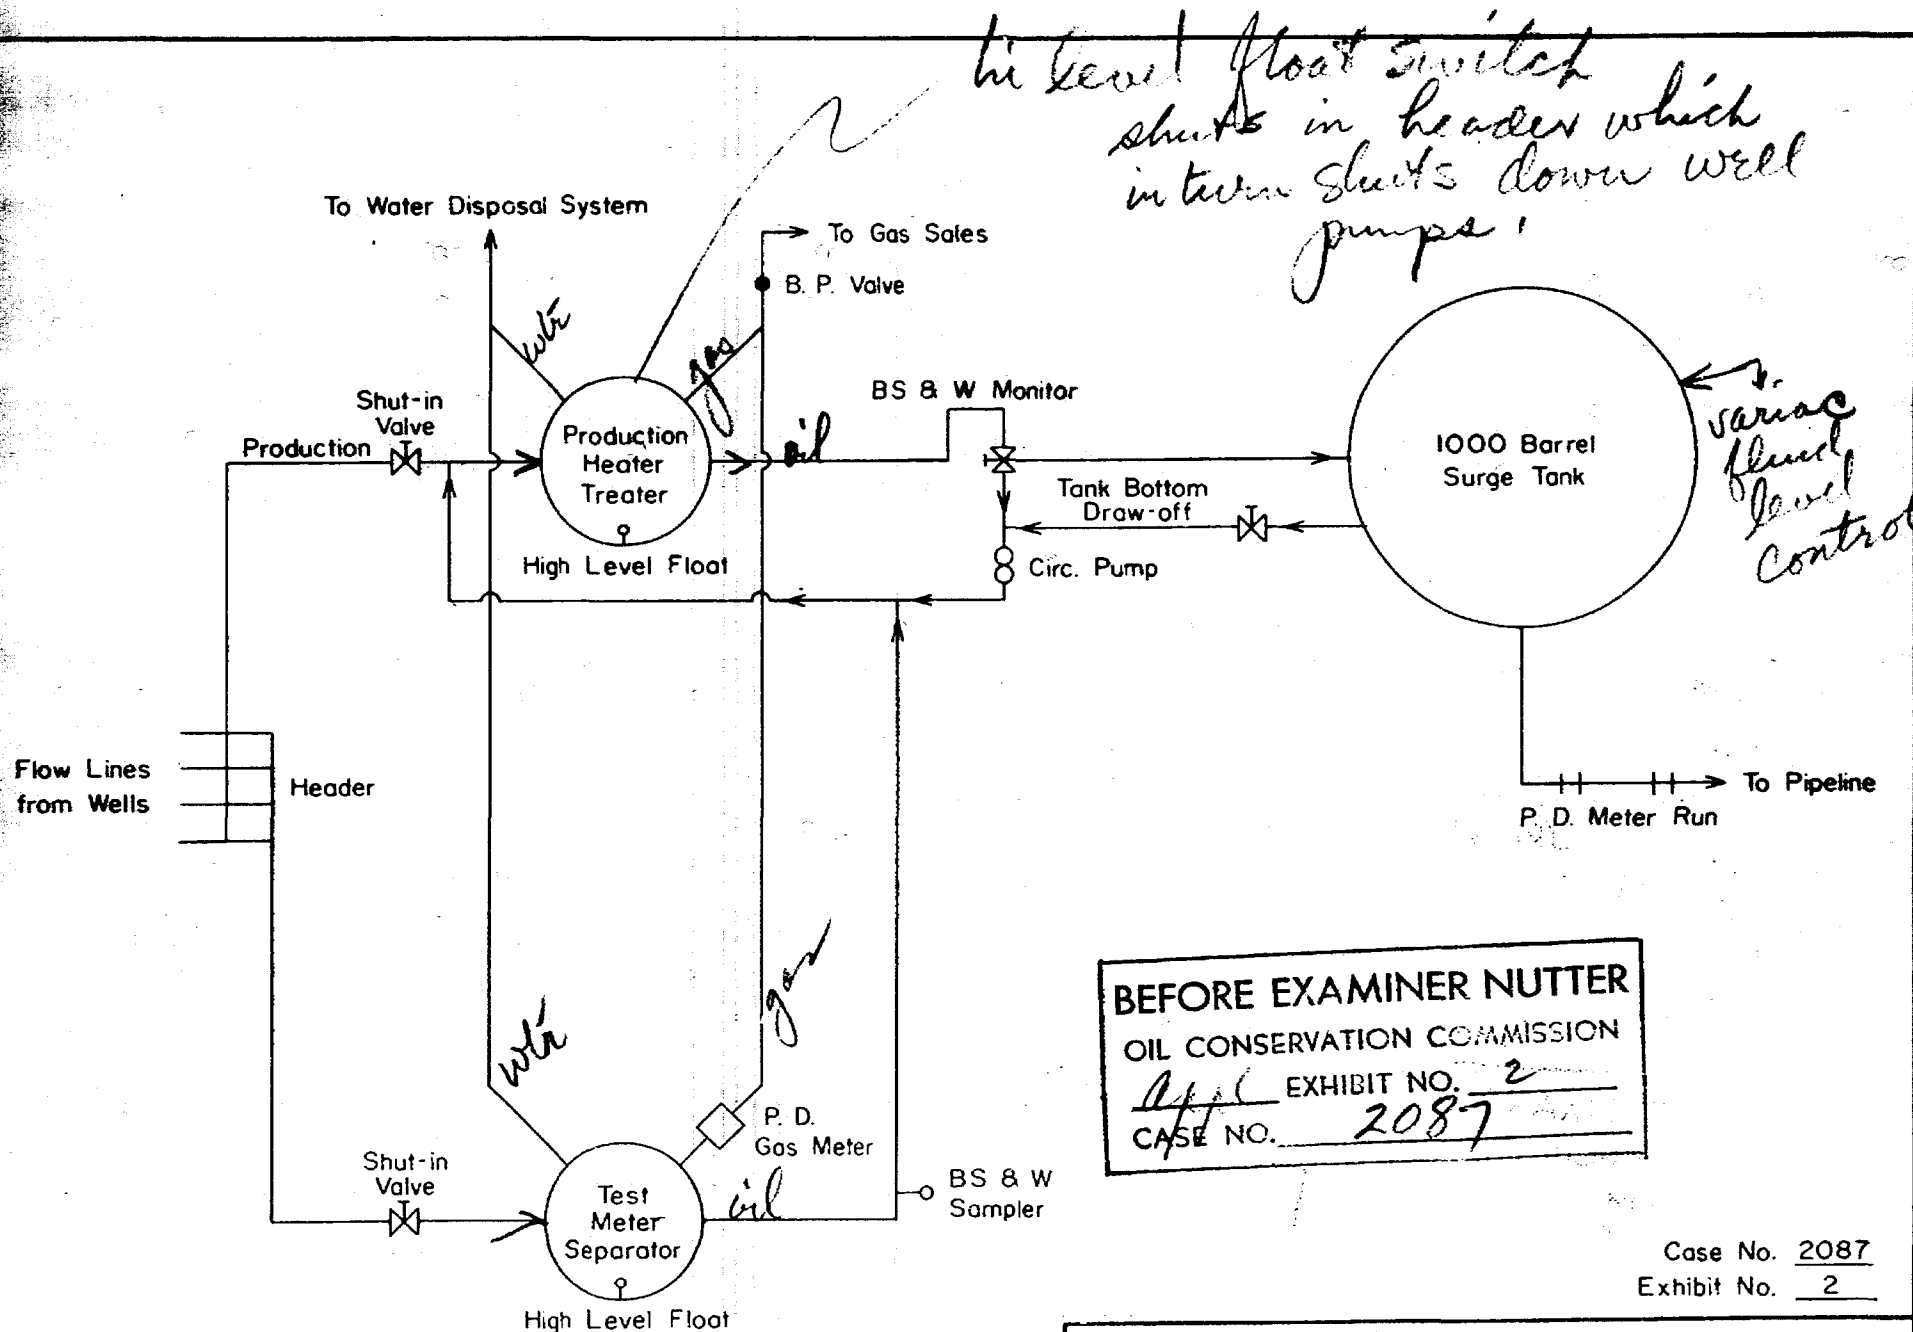 hi level float switch
shuts in header which
in turn shuts down well
pumps.
To Water Disposal System
To Gas Sales
B. P. Valve
wtr
gas
Shut-in
Valve
Production
Production
Heater
Treater
High Level Float
oil
BS & W Monitor
Tank Bottom
Draw-off
Circ. Pump
1000 Barrel
Surge Tank
variac
fluid
level
control
Flow Lines
from Wells
Header
To Pipeline
P. D. Meter Run
wtr
gas
P. D.
Gas Meter
Shut-in
Valve
Test
Meter
Separator
High Level Float
oil
BS & W
Sampler
BEFORE EXAMINER NUTTER
OIL CONSERVATION COMMISSION
EXHIBIT NO. 2
CASE NO. 2087
Case No. 2087
Exhibit No. 2